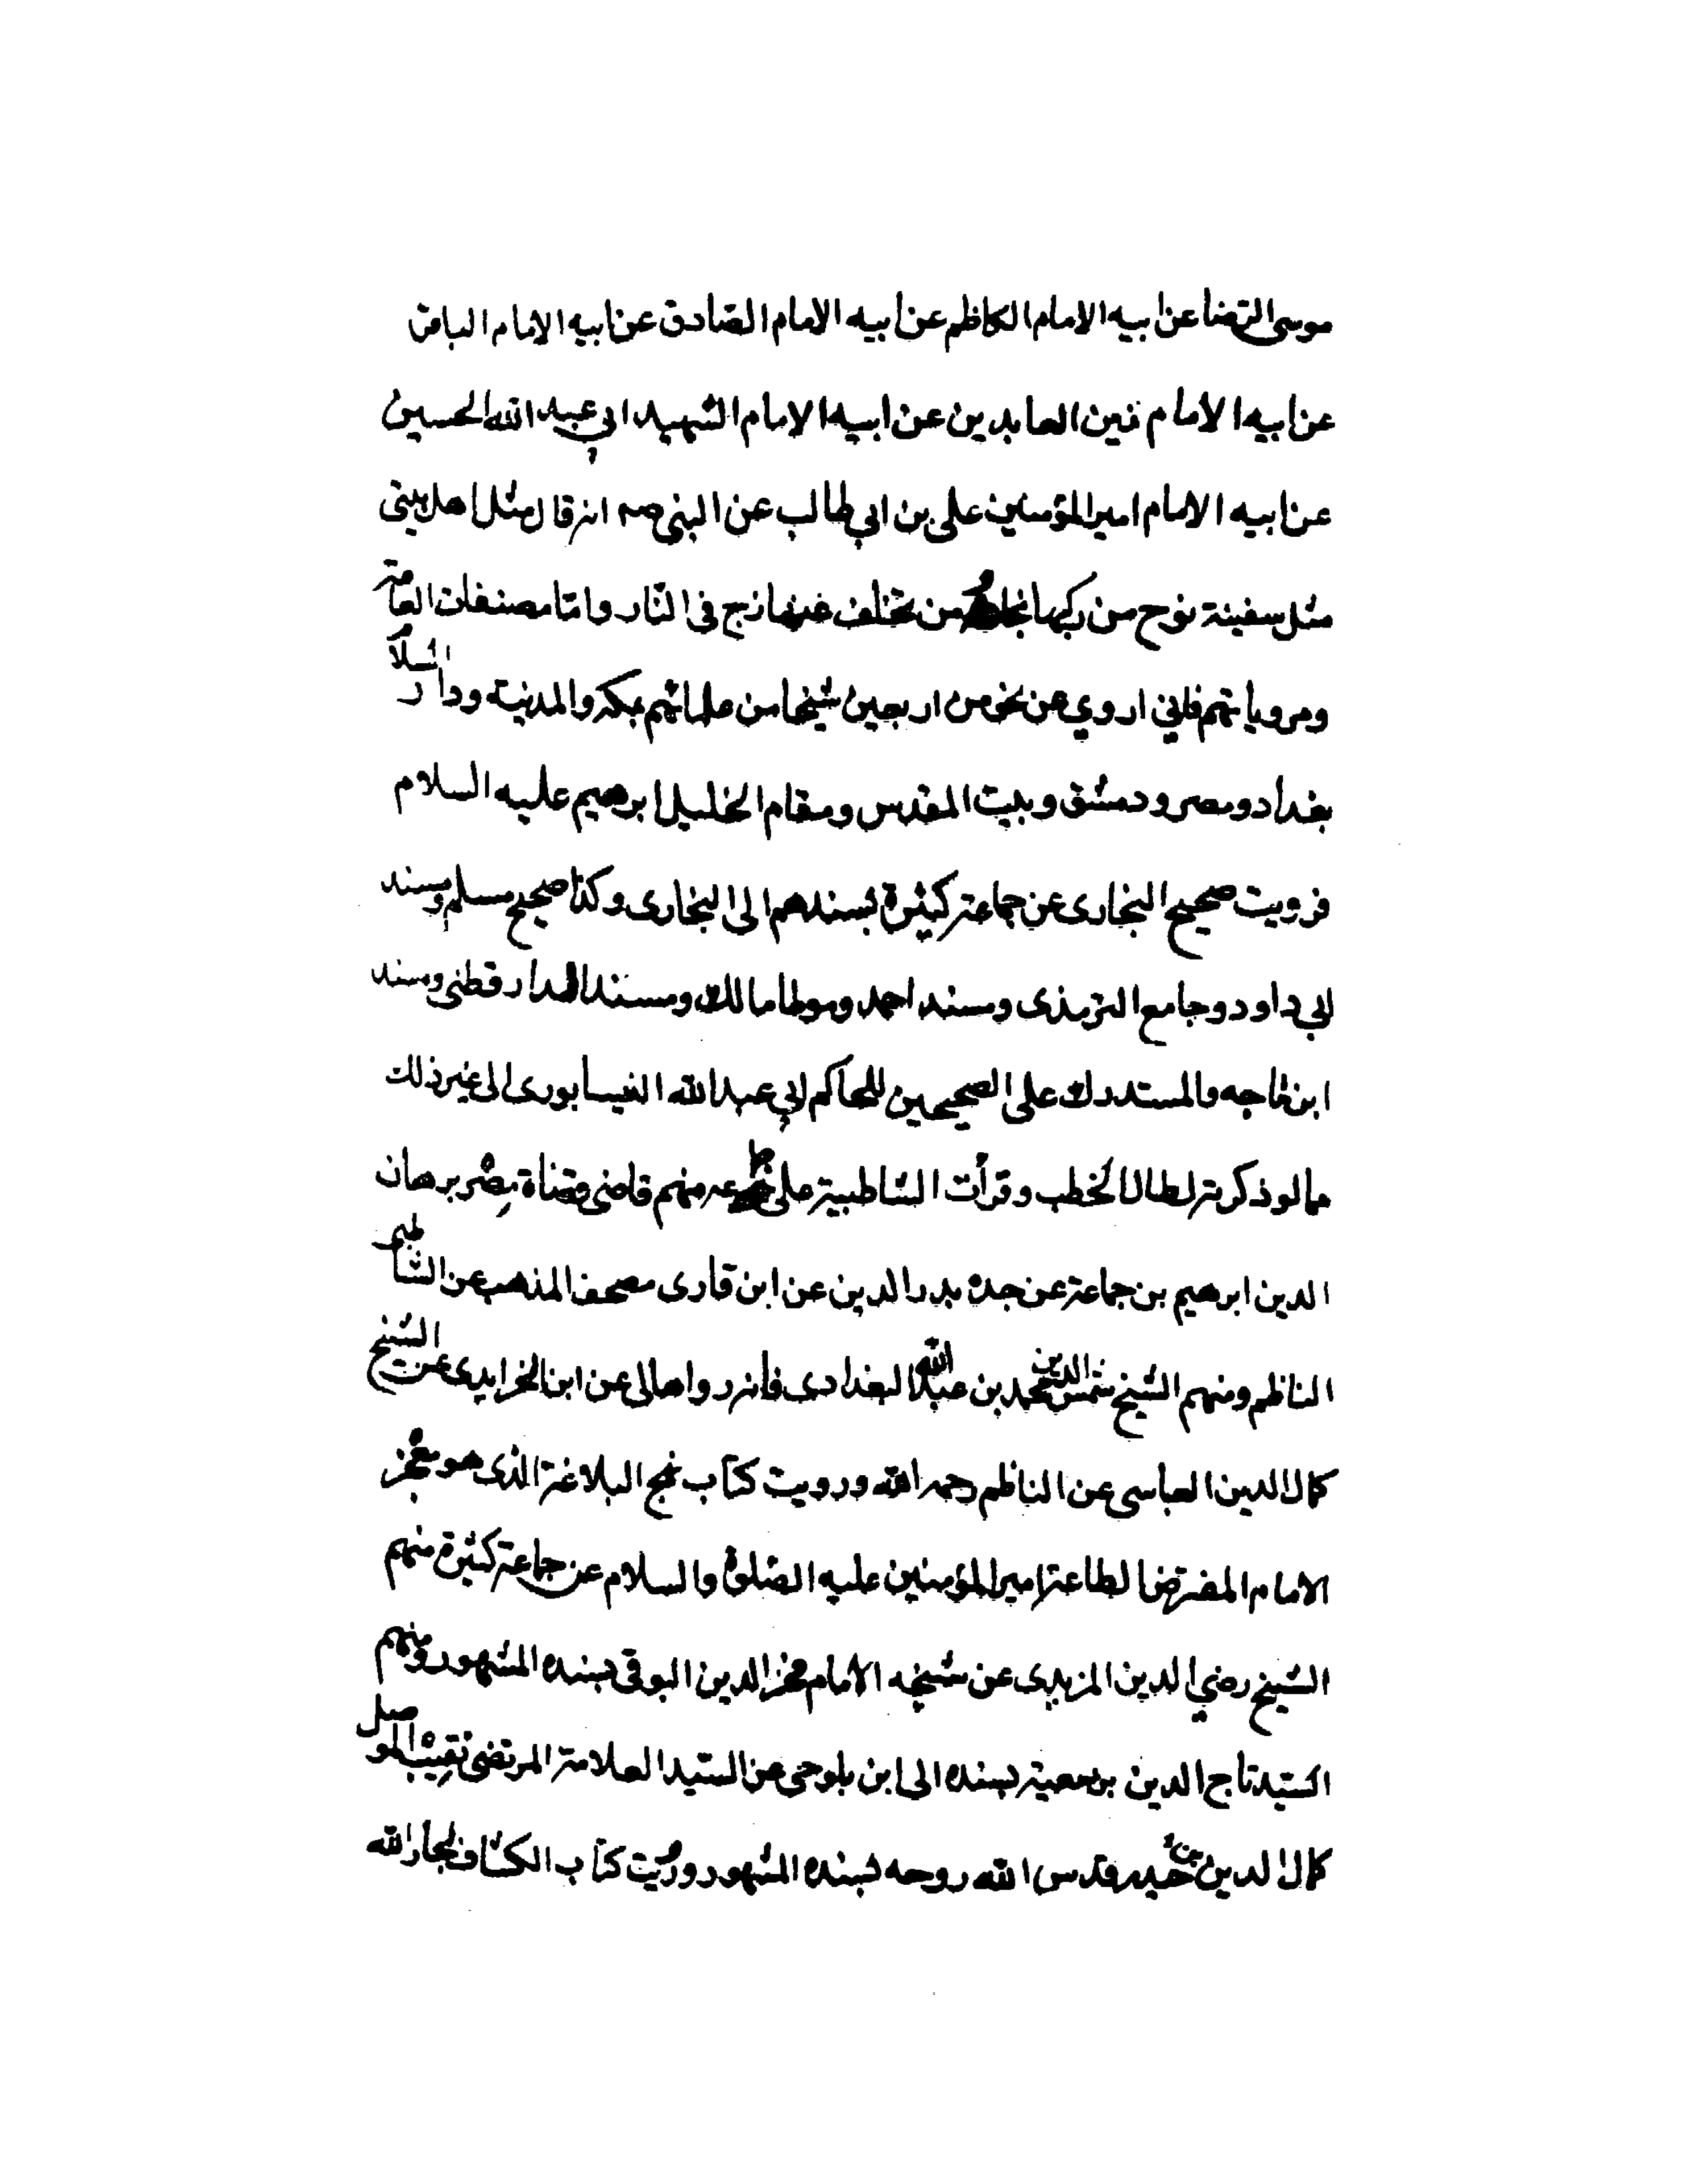 موسى الرضا عن ابيه الامام الكاظم عن ابيه الامام الصادق عن ابيه الامام الباقر
عن ابيه الامام زين العابدين عن ابيه الامام الشهيد ابي عبد الله الحسين
عن ابيه الامام امير المؤمنين علي بن ابي طالب عن النبي صه انه قال مثل اهل بيتي
مثل سفينة نوح من ركبها نجا ومن تخلف عنها زج في النار واما مصنفات العامة
ومروياتهم فاني اروي عن نحو من اربعين شيخا من علمائهم بمكه والمدينة ودار السلام
بغداد ومصر ودمشق وبيت المقدس ومقام الخليل ابرهيم عليه السلام
فرويت صحيح البخارى عن جماعة كثيرة بسندهم الى البخارى وكذا صحيح مسلم ومسند
ابي داود وجامع الترمذى ومسند احمد وموطا مالك ومسند الدار قطنى ومسند
ابن ماجه والمستدرك على الصحيحين للحاكم ابي عبد الله النيسابورى الى غير ذلك
مما لو ذكرته لطال الخطب وقرأت الشاطبية على جماعه منهم قاضى قضاة مصر برهان
الدين ابرهيم بن جماعة عن جده بدر الدين عن ابن قارى مصحف المذهب عن الشاطبى
الناظم ومنهم الشيخ شمس الدين محمد بن عبد الله البغدادى فانه رواها لى عن ابن الخرايدى عن الشيخ
كمال الدين العباسى عن الناظم رحمه الله ورويت كتاب نهج البلاغة الذى هو معجز
الامام المفترض الطاعة امير المؤمنين عليه الصلوة والسلام عن جماعة كثيرة منهم
الشيخ رضي الدين المزيدى عن شيخه الامام فخر الدين البوقى بسنده المشهور ومنهم
السيد تاج الدين بن معية بسنده الى ابن بلوحى عن السيد العلامة المرتضى نقيب الموصل
كمال الدين بن حيدر قدس الله روحه بسنده المشهور ورويت كتاب الكشاف لجار الله